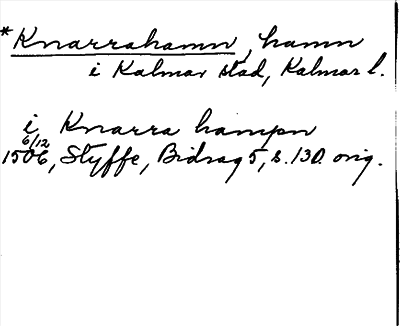 *Knarrahamn, hamn
i Kalmar stad, Kalmar l.
i Knarra hampn
6/12
1506, Styffe, Bidrag 5, s. 130. orig.